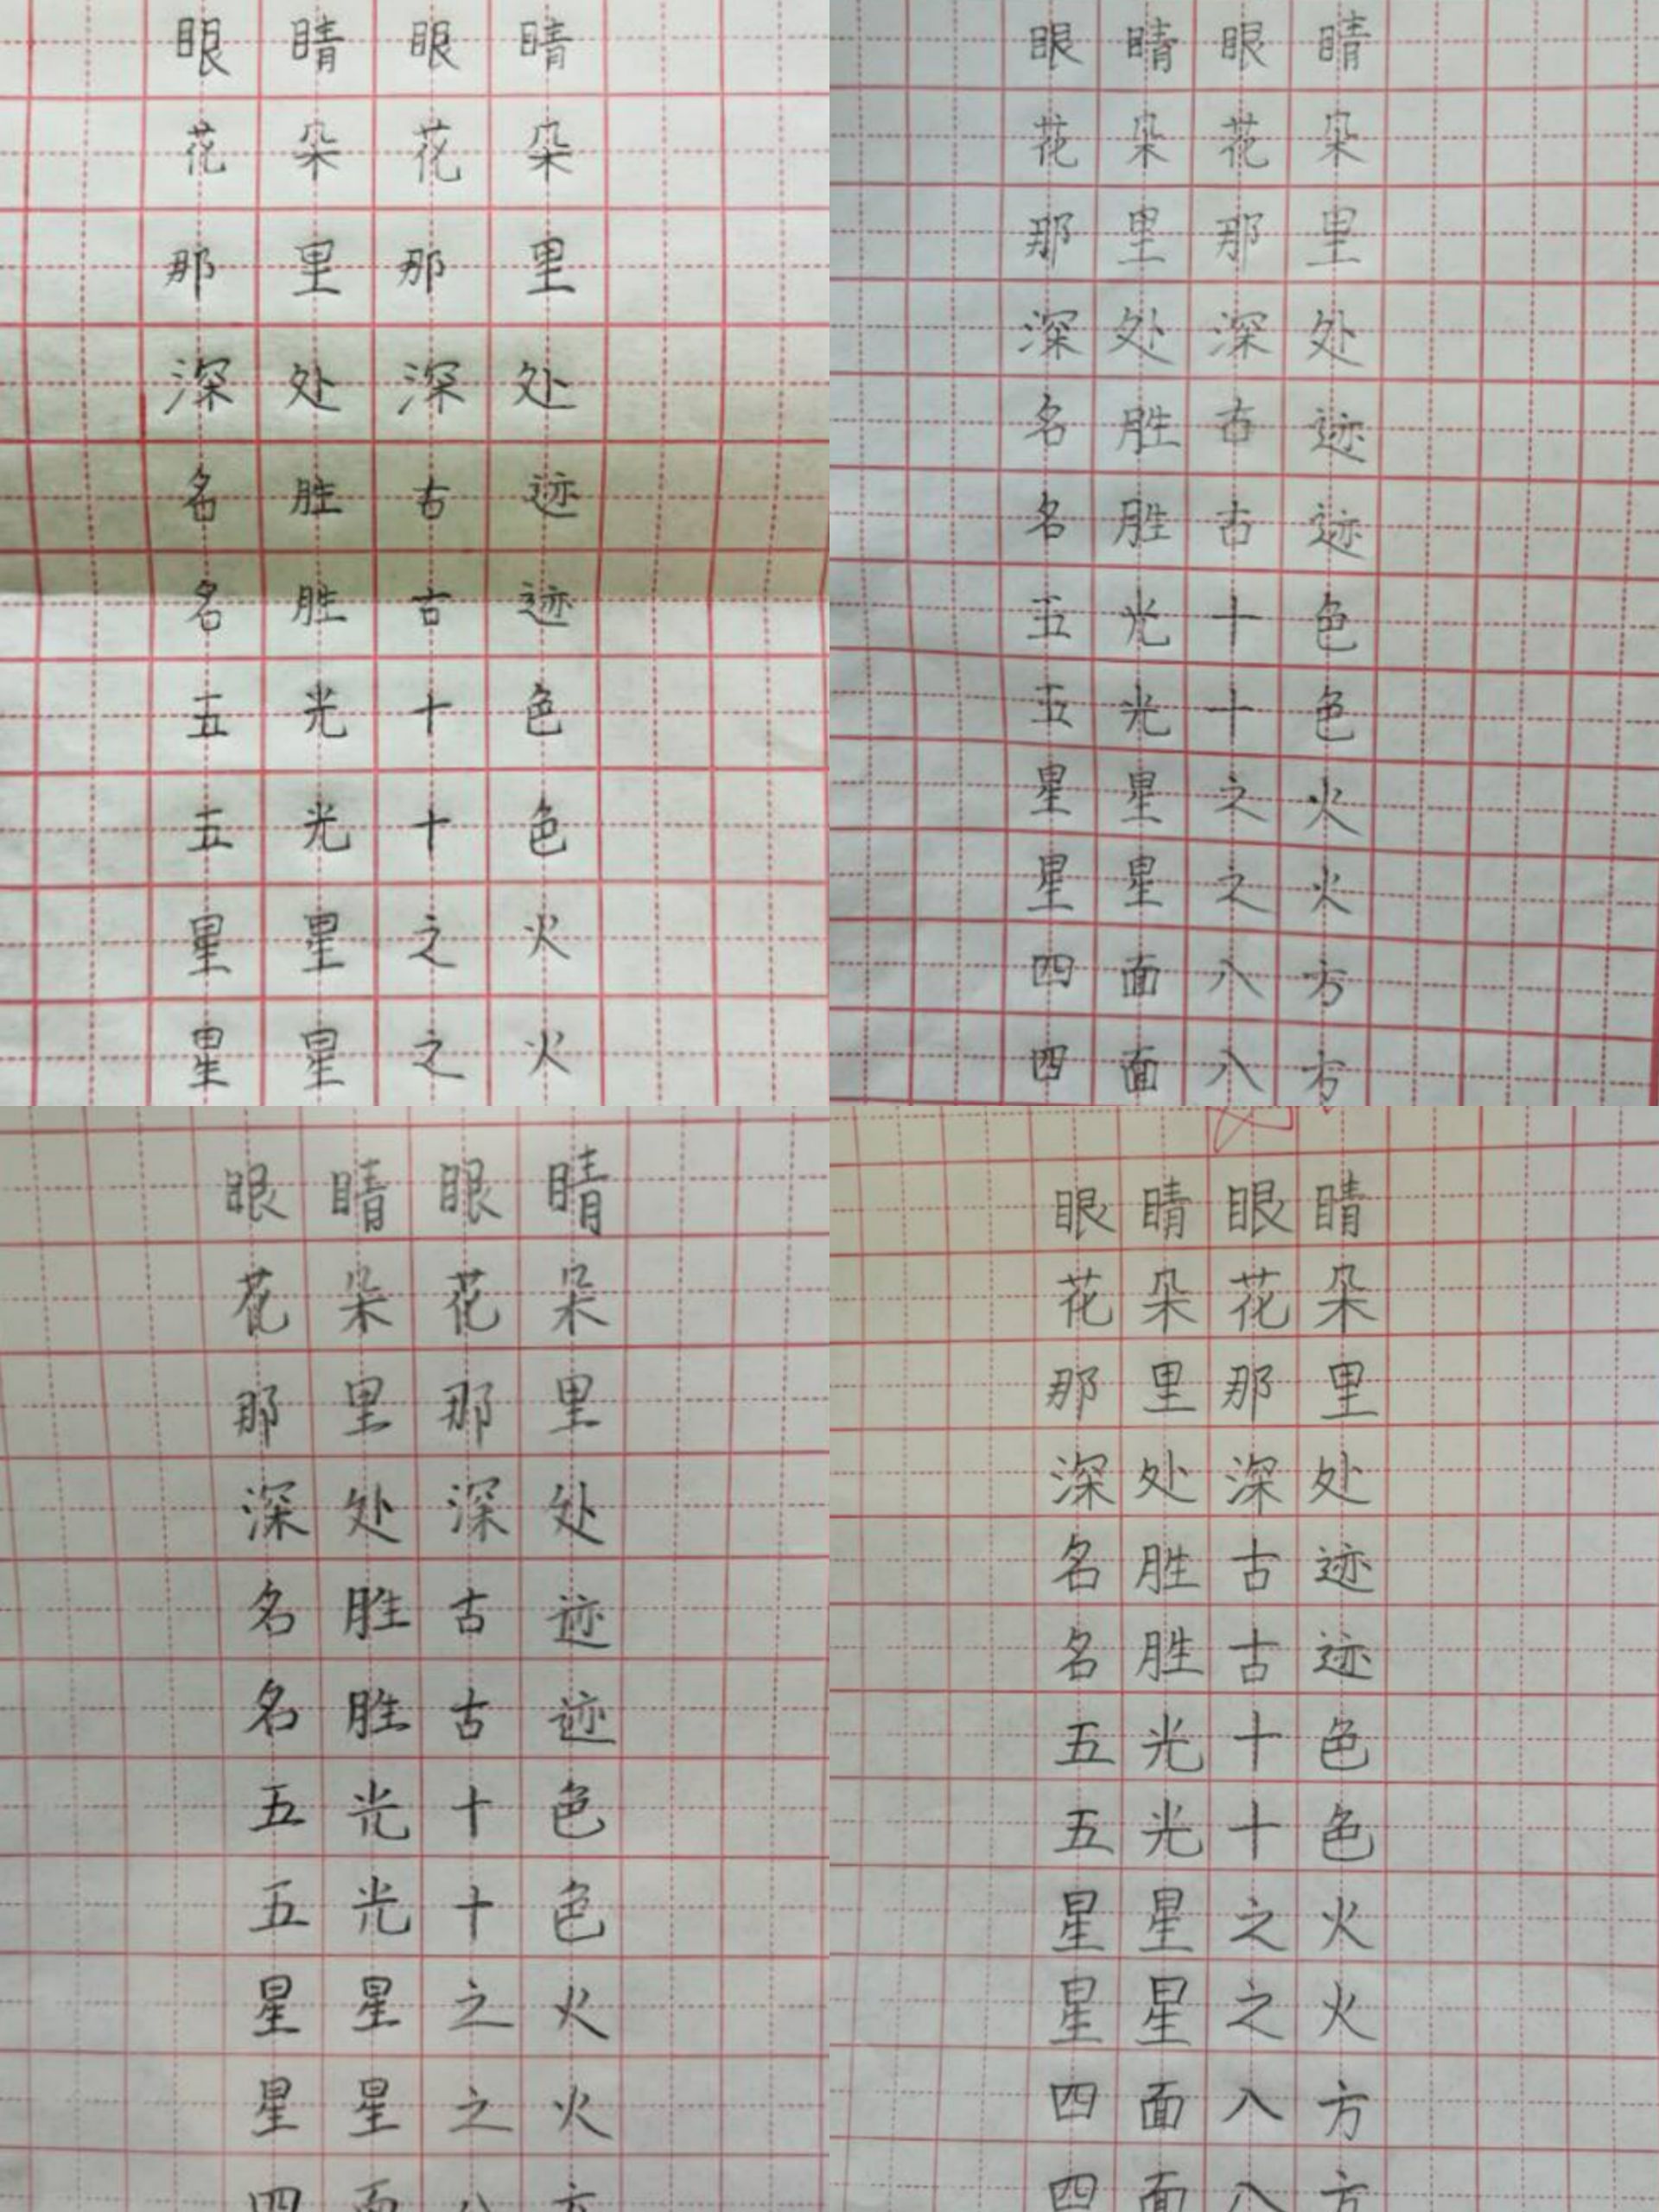 眼睛眼睛
花朵花朵
那里那里
深处深处
名胜古迹
名胜古迹
五光十色
五光十色
星星之火
星星之火
眼睛眼睛
花朵花朵
那里那里
深处深处
名胜古迹
名胜古迹
五光十色
五光十色
星星之火
星星之火
四面八方
四面八方
眼睛眼睛
花朵花朵
那里那里
深处深处
名胜古迹
名胜古迹
五光十色
五光十色
星星之火
星星之火
四面八方
眼睛眼睛
花朵花朵
那里那里
深处深处
名胜古迹
名胜古迹
五光十色
五光十色
星星之火
星星之火
四面八方
四面八方